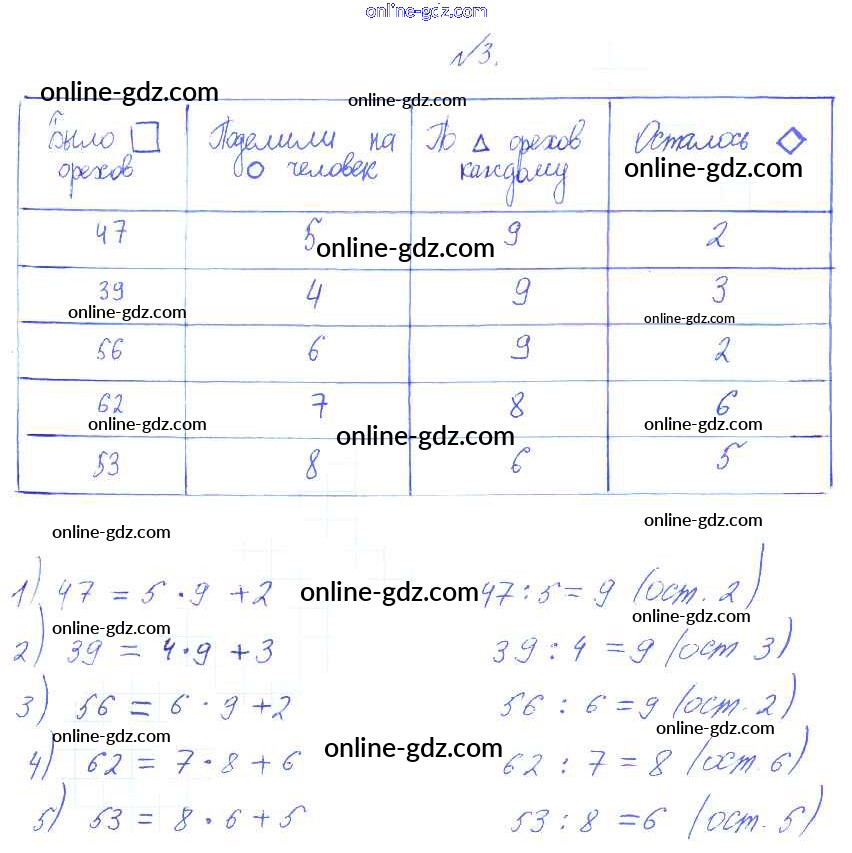 online-gdz.com
№3.
online-gdz.com
online-gdz.com
Было □ орехов
Поделили на ○ человек
По △ орехов каждому
Осталось ◇
online-gdz.com
47 5 9 2
online-gdz.com
39 4 9 3
online-gdz.com
online-gdz.com
56 6 9 2
62 7 8 6
online-gdz.com
online-gdz.com
online-gdz.com
53 8 6 5
online-gdz.com
online-gdz.com
1) 47 = 5 · 9 + 2 47 : 5 = 9 (ост. 2)
online-gdz.com
online-gdz.com
online-gdz.com
2) 39 = 4 · 9 + 3 39 : 4 = 9 (ост 3)
3) 56 = 6 · 9 + 2 56 : 6 = 9 (ост. 2)
online-gdz.com
online-gdz.com
online-gdz.com
4) 62 = 7 · 8 + 6 62 : 7 = 8 (ост. 6)
5) 53 = 8 · 6 + 5 53 : 8 = 6 (ост. 5)